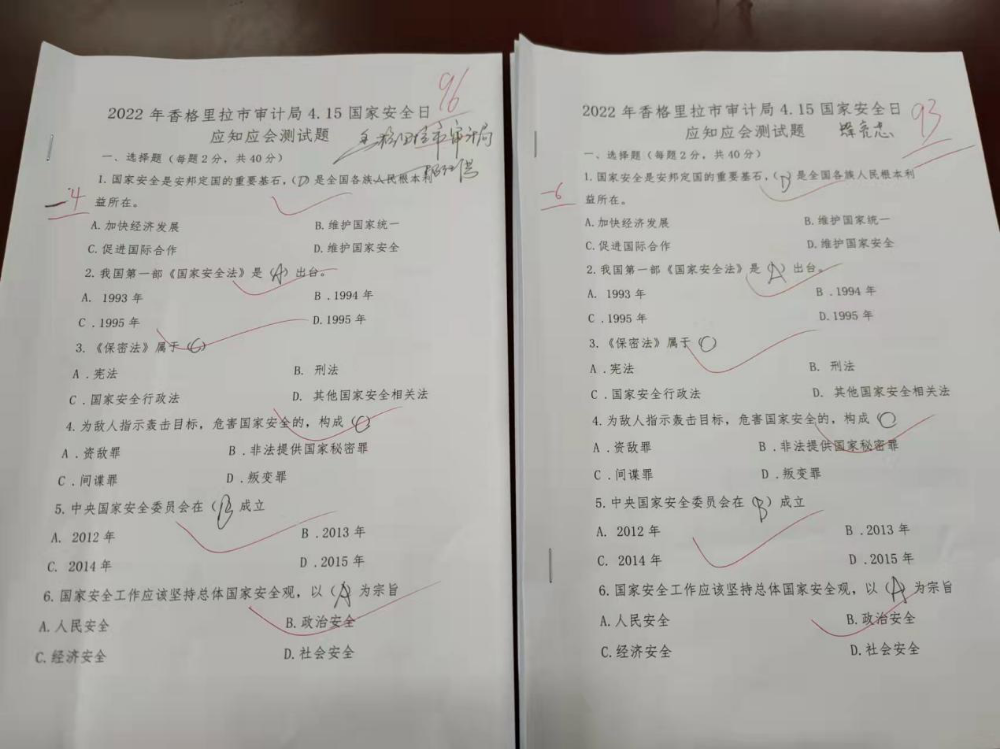 96
2022 年香格里拉市审计局 4.15 国家安全日
应知应会测试题
香格里拉市审计局
一、选择题（每题 2 分，共 40 分）
1. 国家安全是安邦定国的重要基石，（D）是全国各族人民根本利
-4
益所在。
A. 加快经济发展 B. 维护国家统一
C. 促进国际合作 D. 维护国家安全
2. 我国第一部《国家安全法》是（A）出台。
A. 1993 年 B .1994 年
C .1995 年 D. 1995 年
3. 《保密法》属于（C）
A .宪法 B. 刑法
C .国家安全行政法 D. 其他国家安全相关法
4. 为敌人指示轰击目标，危害国家安全的，构成（C）
A .资敌罪 B .非法提供国家秘密罪
C .间谍罪 D .叛变罪
5. 中央国家安全委员会在（B）成立
A. 2012 年 B .2013 年
C. 2014 年 D .2015 年
6. 国家安全工作应该坚持总体国家安全观，以（A）为宗旨
A. 人民安全 B. 政治安全
C. 经济安全 D. 社会安全
93
2022 年香格里拉市审计局 4.15 国家安全日
应知应会测试题
一、选择题（每题 2 分，共 40 分）
1. 国家安全是安邦定国的重要基石，（D）是全国各族人民根本利
-6
益所在。
A. 加快经济发展 B. 维护国家统一
C. 促进国际合作 D. 维护国家安全
2. 我国第一部《国家安全法》是（A）出台。
A. 1993 年 B .1994 年
C .1995 年 D. 1995 年
3. 《保密法》属于（C）
A .宪法 B. 刑法
C .国家安全行政法 D. 其他国家安全相关法
4. 为敌人指示轰击目标，危害国家安全的，构成（C）
A .资敌罪 B .非法提供国家秘密罪
C .间谍罪 D .叛变罪
5. 中央国家安全委员会在（B）成立
A. 2012 年 B .2013 年
C. 2014 年 D .2015 年
6. 国家安全工作应该坚持总体国家安全观，以（A）为宗旨
A. 人民安全 B. 政治安全
C. 经济安全 D. 社会安全